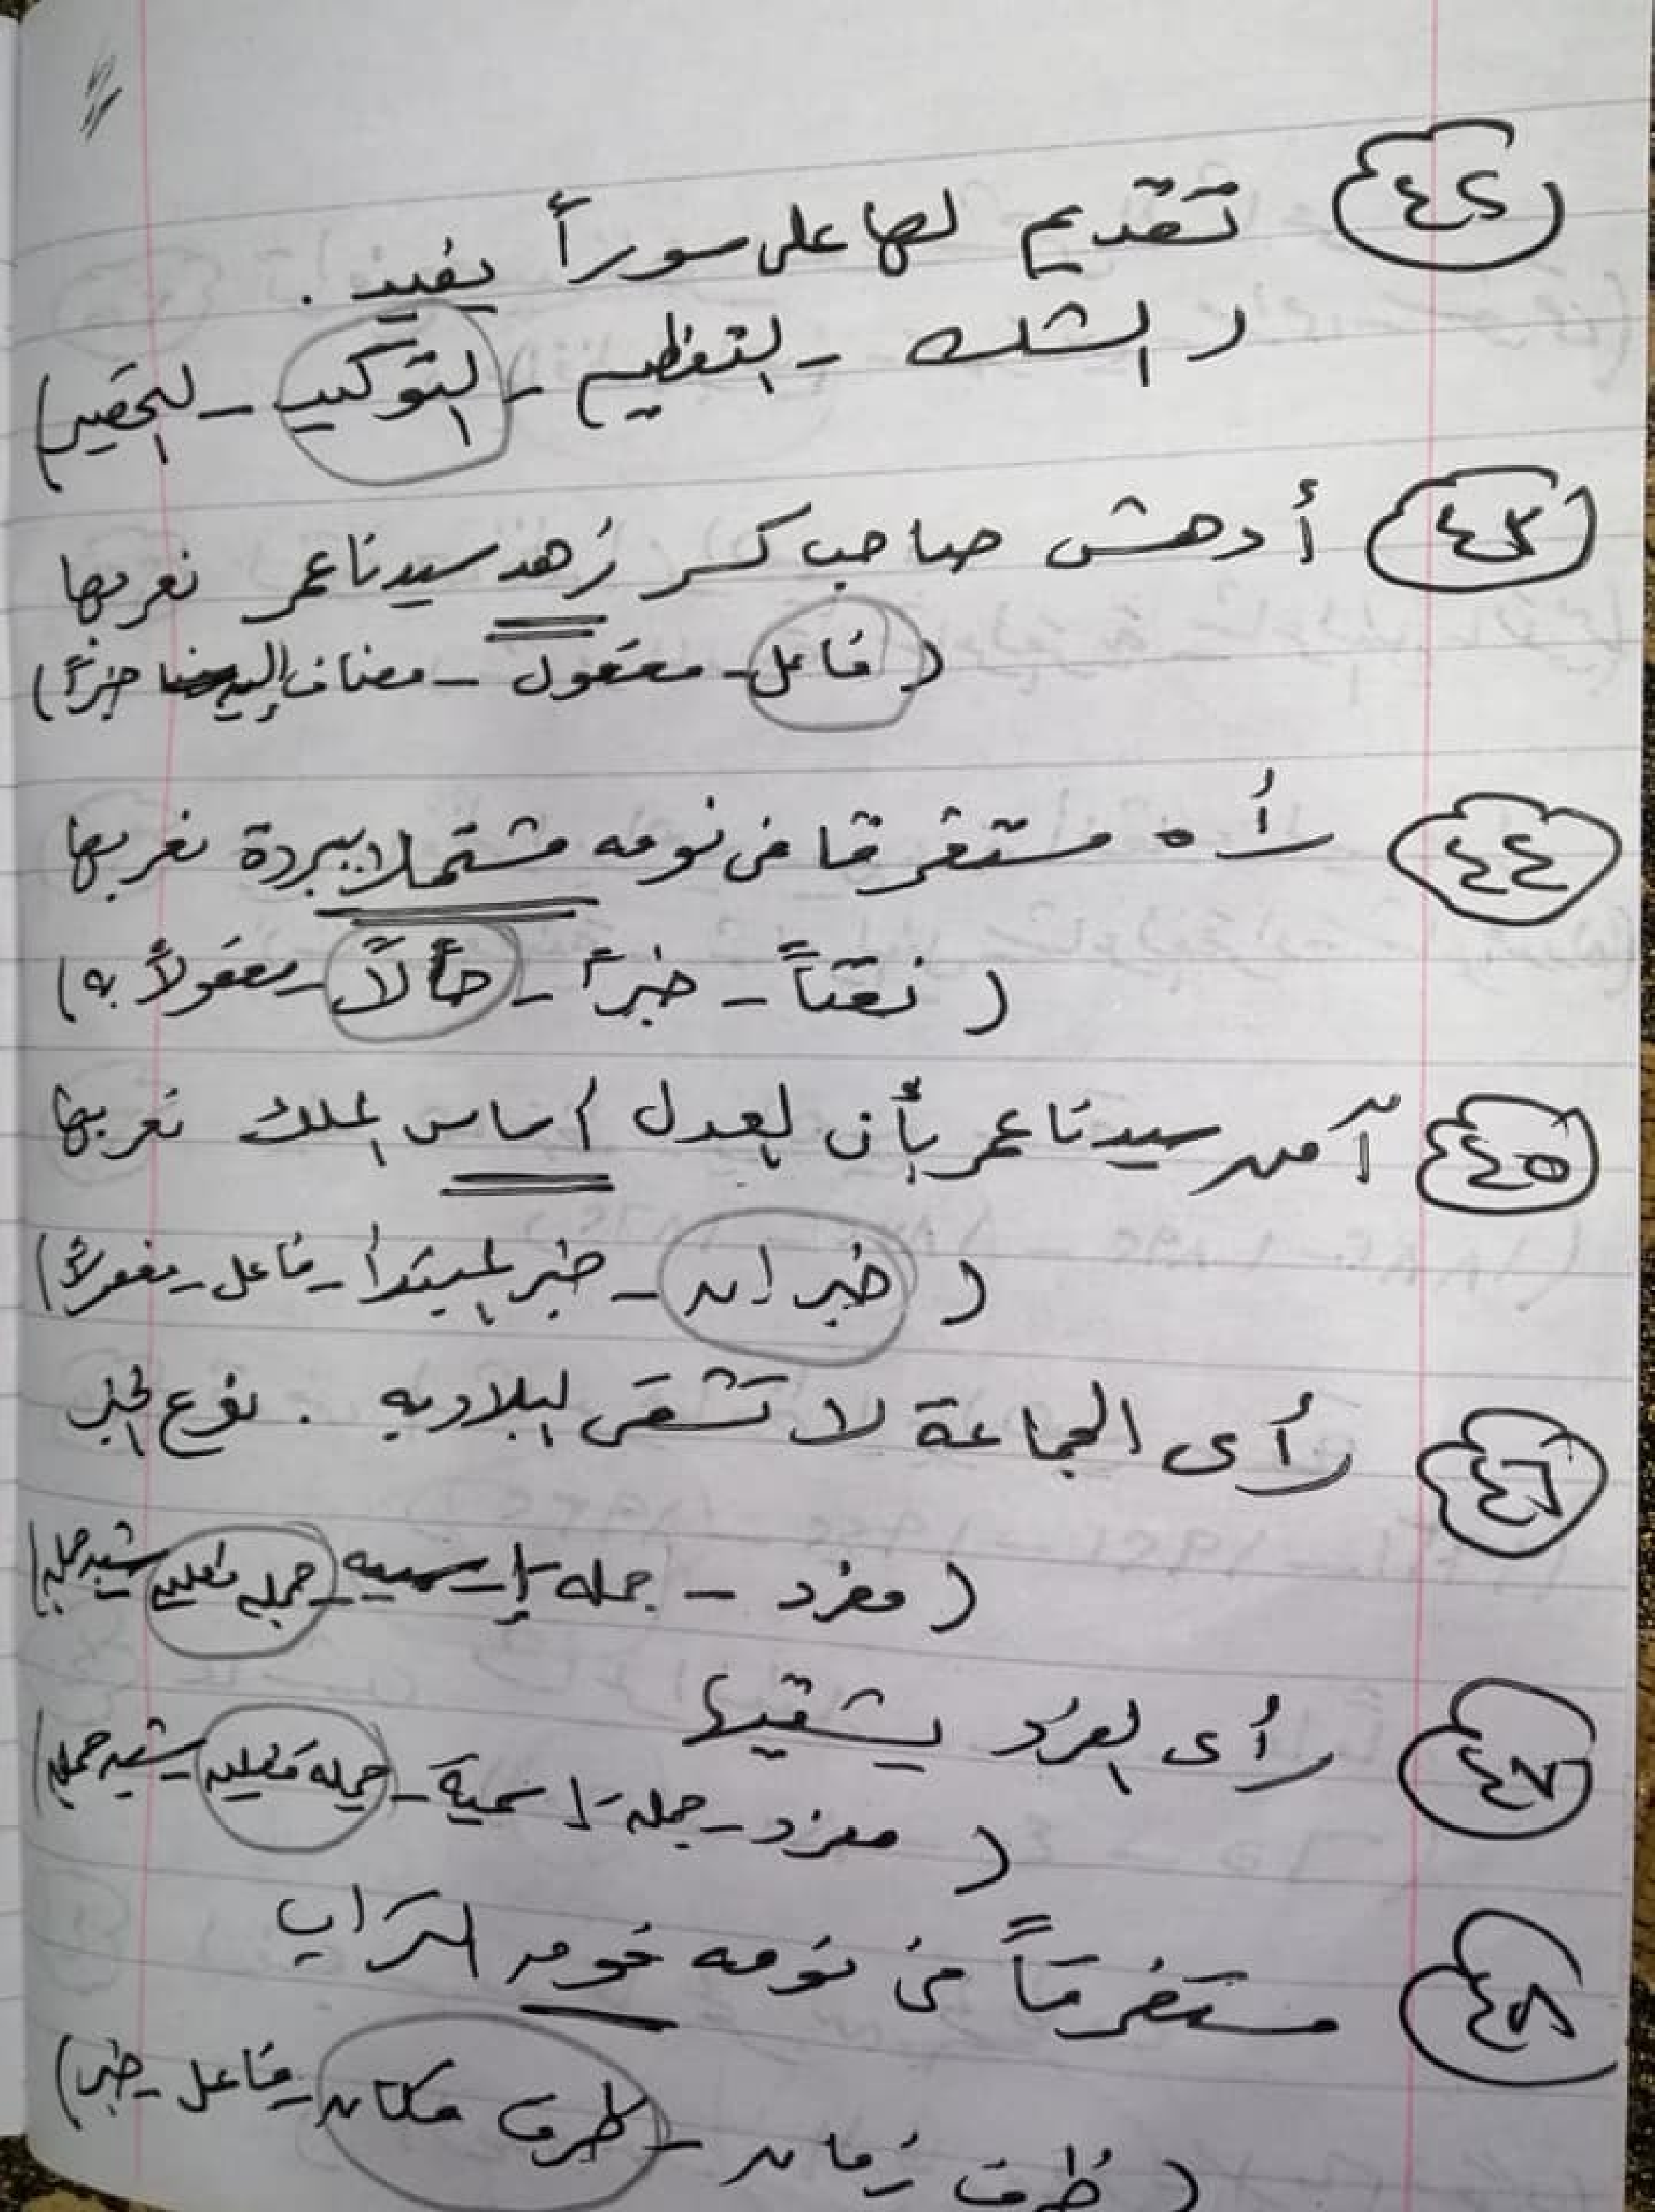 ٤٢ تقديم لها على سوراً يفيد .
( الشك - التعظيم - التوكيد - التحقير )
٤٣ أدهش صاحب كسر زهد سيدنا عمر نعربها
( فاعل - مفعول - مضاف إليه - خبراً )
٤٤ رأه مستغرقا فى نومه مشتملا ببردة نعربها
( نعتاً - خبراً - حالاً - مفعولاً به )
٤٥ آمن سيدنا عمر بأن العدل أساس الملك نعربها
( خبر إن - خبر المبتدأ - فاعل - مفعولاً )
٤٦ رأى الجماعة لا تشقى البلاد به . نوع الخبر
( مفرد - جملة إسمية - جملة فعلية - شبه جملة )
٤٧ رأى الفرد يشقيها
( مفرد - جملة اسمية - جملة فعلية - شبه جملة )
٤٨ مستغرقاً فى نومه فوق التراب
( ظرف زمان - ظرف مكان - فاعل - خبر )